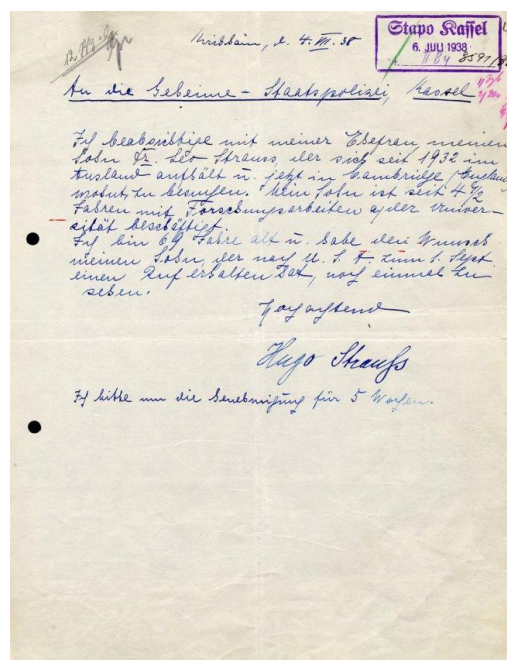 Kirchhain, d. 4. VII. 38
Stapo Kassel
6. JULI 1938
8591/
An die Geheime-Staatspolizei, Kassel
Ich beabsichtige mit meiner Ehefrau, meinen
Sohn Dr. Leo Strauss, der sich seit 1932 im
Ausland aufhält u. jetzt in Cambridge / England
wohnt, zu besuchen. Mein Sohn ist seit 4 1/2
Jahren mit Forschungsarbeiten a/ der Univer-
sität beschäftigt.
Ich bin 69 Jahre alt u. habe den Wunsch
meinen Sohn, der nach U. S. A. zum 1. Sept
einen Ruf erhalten hat, noch einmal zu
sehen.
Hochachtend
Hugo Strauss
Ich bitte um die Genehmigung für 5 Wochen.